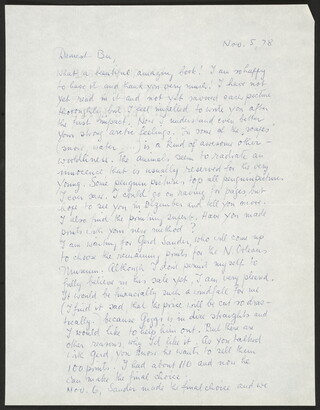 Nov. 5, 78
Dearest
What a beautiful amazing book! I am so happy
to have it and thank you very much. I have not
yet read in it and not yet savored each picture
thoroughly but I feel impelled to write you after
the first impact. Now I understand even better
your strong arctic feelings. In some of the scapes
(snow, water, ...) is a kind of awesome other-
worldliness. The animals seem to radiate an
innocence that is usually reserved for the very
young. Some penguin pictures top all penguin pictures
I ever saw. I could go on raving for pages but
hope to see you in December and tell you more.
I also find the printing superb. Have you made
prints with your new method?
I am waiting for Gerd Sander, who will come up
to choose the remaining prints for the N. Orleans
Museum. Although I don't permit myself to
fully believe in this sale yet, I am very pleased.
It would be financially such a windfall for me
I find it sad that the price will be cut so dras-
tically. because Goggi is in dire straights and
I would like to help him out. But there are
other reasons why I'd like it. As you talked
with Gerd you know he wants to sell them
100 prints. I had about 110 and now he
can make the final choice.
Nov. 6, Sander made the final choice and we